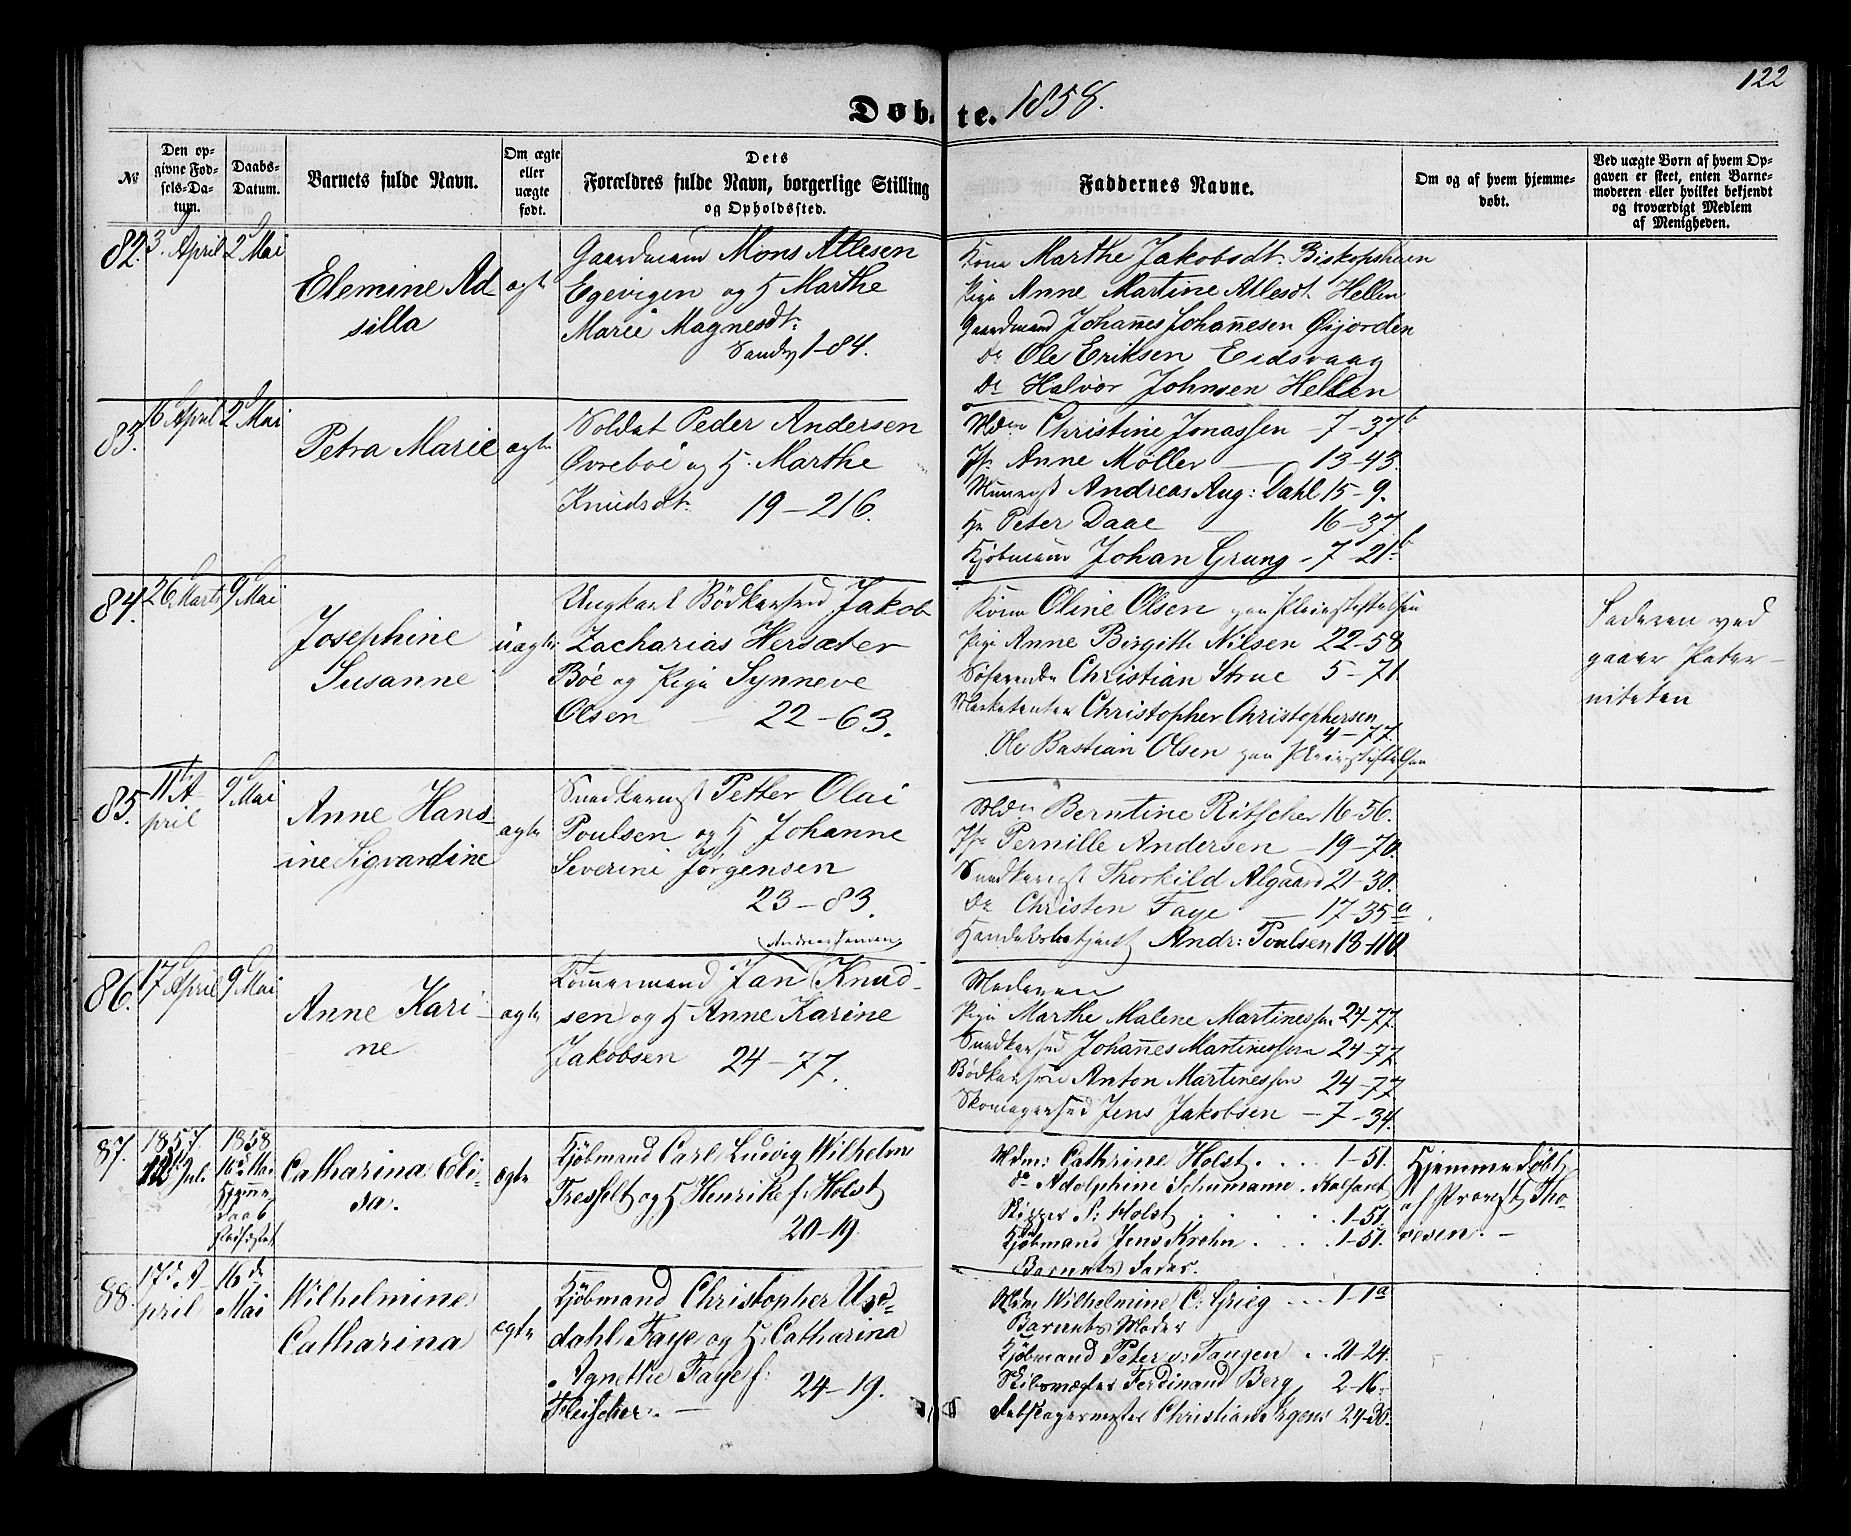 122
Døbte. 1858.
No
Den opgivne Fødsels-Datum.
Daabs-Datum.
Barnets fulde Navn.
Om ægte eller uægte født.
Dets Forældres fulde Navn, borgerlige Stilling og Opholdssted.
Faddernes Navne.
Om og af hvem hjemmedøbt.
Ved uægte Børn af hvem Opgaven er skeet, enten Barnemoderen eller hvilket bekjendt og troværdigt Medlem af Menigheden.
82. 3. April 2 Mai
Elemine Ad
silla
ægte
Gaardmand Mons Atlesen
Egevigen og H Marthe
Marie Magnesdt:
1-84.
Kone Marthe Jakobsdt. Biskopshavn
Pige Anne Martine Atlesdt Hellen
Gaardmand Johañes Johañesen Øyjorden
Do Ole Eriksen Eidsvaag
Do Halvor Johnsen Hellen
83. 16 April 2 Mai
Petra Marie
ægte
Soldat Peder Andersen
Øvreboe og H. Marthe
Knudsdt: 19-216.
Mdm Christine Jonassen - 7-37b
Jfr Anne Møller 13-43.
Muursv Andreas Aug: Dahl 15-9.
Hr Peter Daae 16-37
Kjøbmand Johan Grung - 7-21b
84. 26 Marts 9 Mai
Josephine
Susanne
uægte
Ungkarl Bödkersvd Jakob
Zacharias Hersæter
Bøe og Pige Synneve
Olsen 22-63.
Kone Oline Olsen paa Pleiestiftelsen
Pige Anne Birgitte Nilsen 22-58
Søfarende Christian Strue 5-71
Marketenter Christopher Christophersen
4-77.
Ole Bastian Olsen paa Pleiestiftelsen
Faderen ved
gaaer Pater-
niteten
85. 11te A-
pril
9 Mai
Anne Hans-
ine Sigvardine
ægte
Snedkersv Petter Olai
Poulsen og H Johanne
Severine Jørgensen
23-83.
Mdm Berntine Ritscher 16-56.
Jfr Pernille Andersen - 19-70.
Snedkersv Thorkild Algaard 21-30.
Do Christen Faye - 17-35a
Handelsbetjent Andr: Poulsen 18-110
86. 17 April 9 Mai
Anne Kari-
ne
ægte
(Andreas Jansen)
Tømmermand Jan (Knud-
sen) og H Anne Karine
Jakobsen 24-77.
Moderen
Pige Marthe Malene Martinessen 24-77
Snedkersvd Johañes Martinessen 24-77
Bødkersvd Anton Martinessen 24-77
Skomagersvd Jens Jakobsen - 7-34.
87. 1857
12 Jul.
1858
16de Mai
Hjemme
daab
stadfæstet
Catharina Eli-
da.
ægte
Kjøbmand Carl Ludvig Wilhelm
Tresselt og H Henrike f. Holst
20-19.
Mdm: Cathrine Holst. . . . 1-51.
do Adolphine Schumann . Kalfaret
Skipper P: Holst . . . . 1-51.
Kjøbmand Jens Krohn . . . . 1-51.
Barnets Fader.
Hjemmedøbt
af Provst Tho-
resen. -
88. 17de A
pril
16de
Mai
Wilhelmine
Catharina
ægte
Kjøbmand Christopher Und-
dahl Faye og H. Catharina
Agnethe Faye f:
Fleischer. - 24-19.
Mdm Wilhelmine C: Grieg ... 1-1a
Barnets Moder
Kjøbmand Peter v: Tangen .. 20-24.
Skibsmægler Ferdinand Berg 2-16.
Rebslagermester Christian Irgens 24-30.